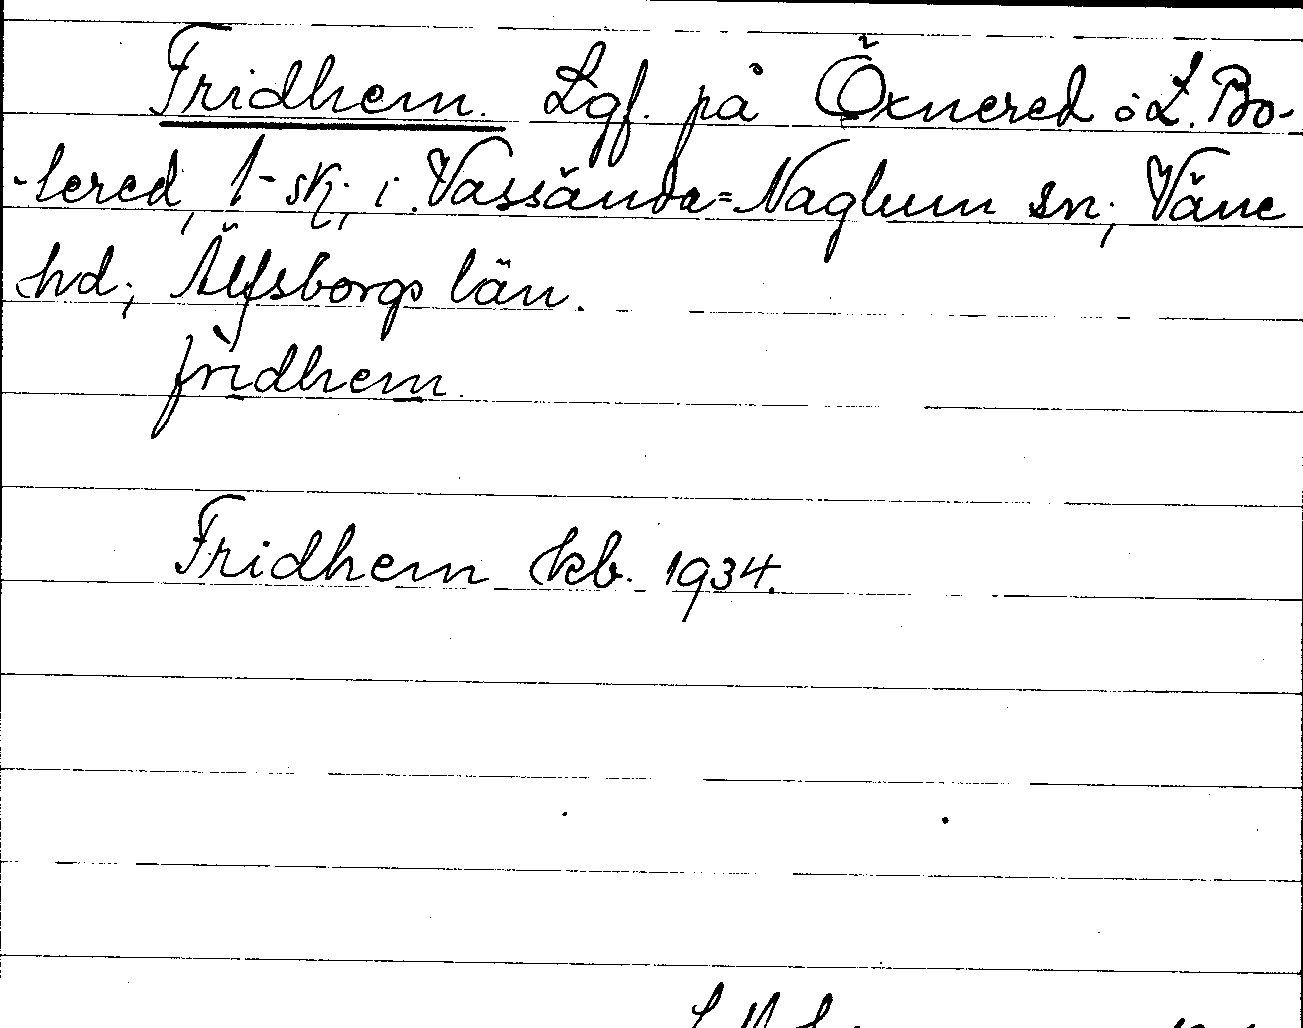 Fridhem. Lgf. på Öxnered o L. Bo-
-lered, 1-sk; i Vassända=Naglum sn; Väne
hd; Älfsborgs län.
fridhem.
Fridhem kb. 1934.